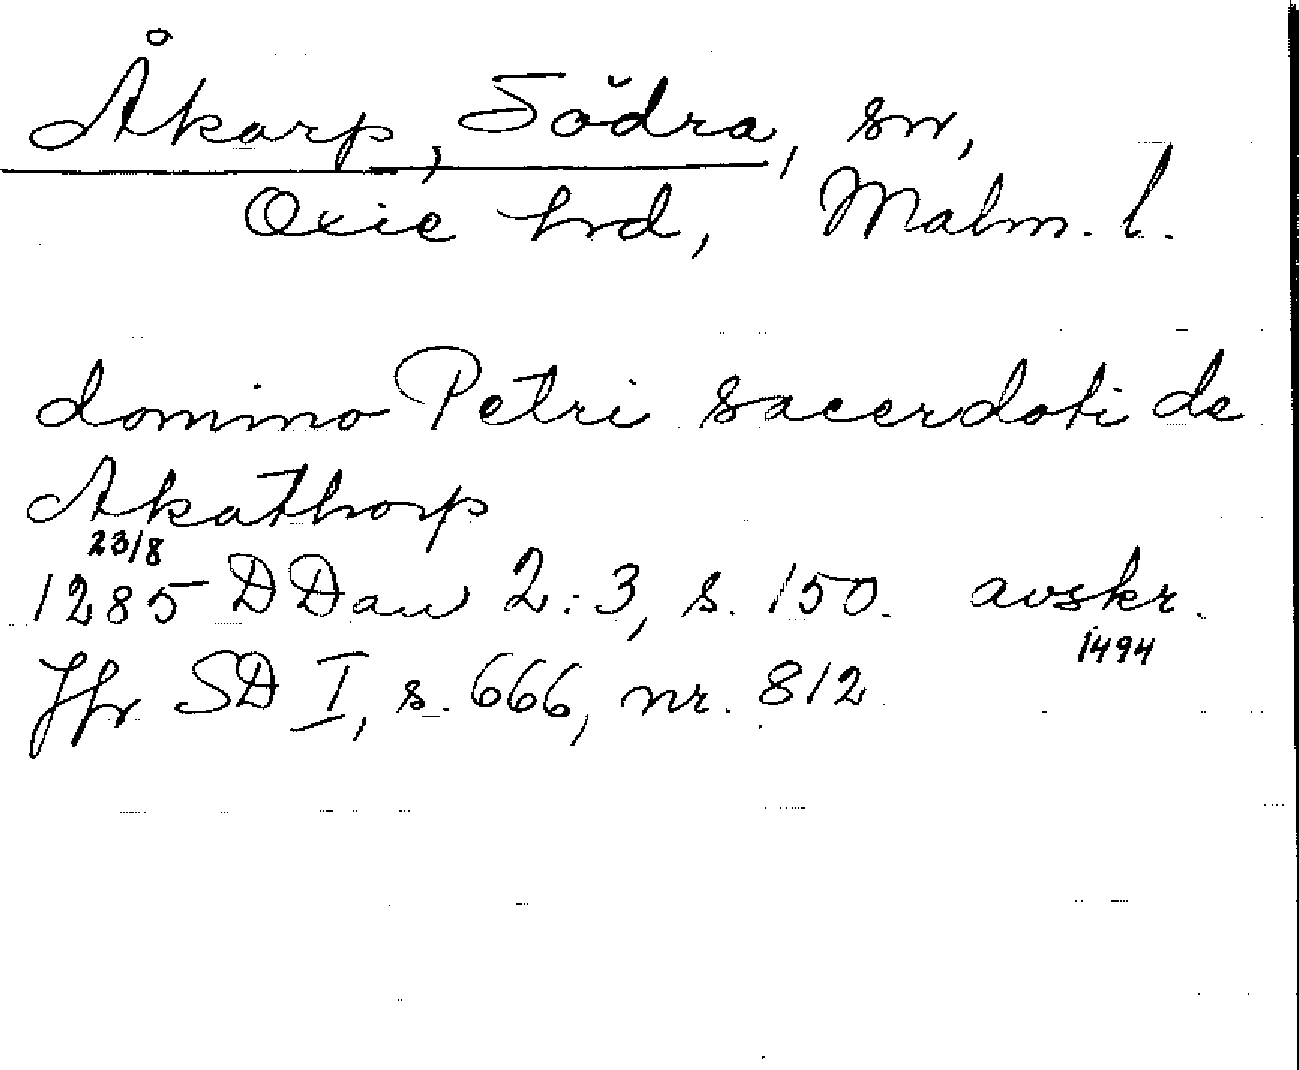 Åkarp, Södra, sn,
Oxie hrd, Malm. l.
domino Petri sacerdoti de
Akathorp
23/8
1285 DDan 2:3, s. 150. avskr.
1494
Jfr SD I, s. 666, nr. 812